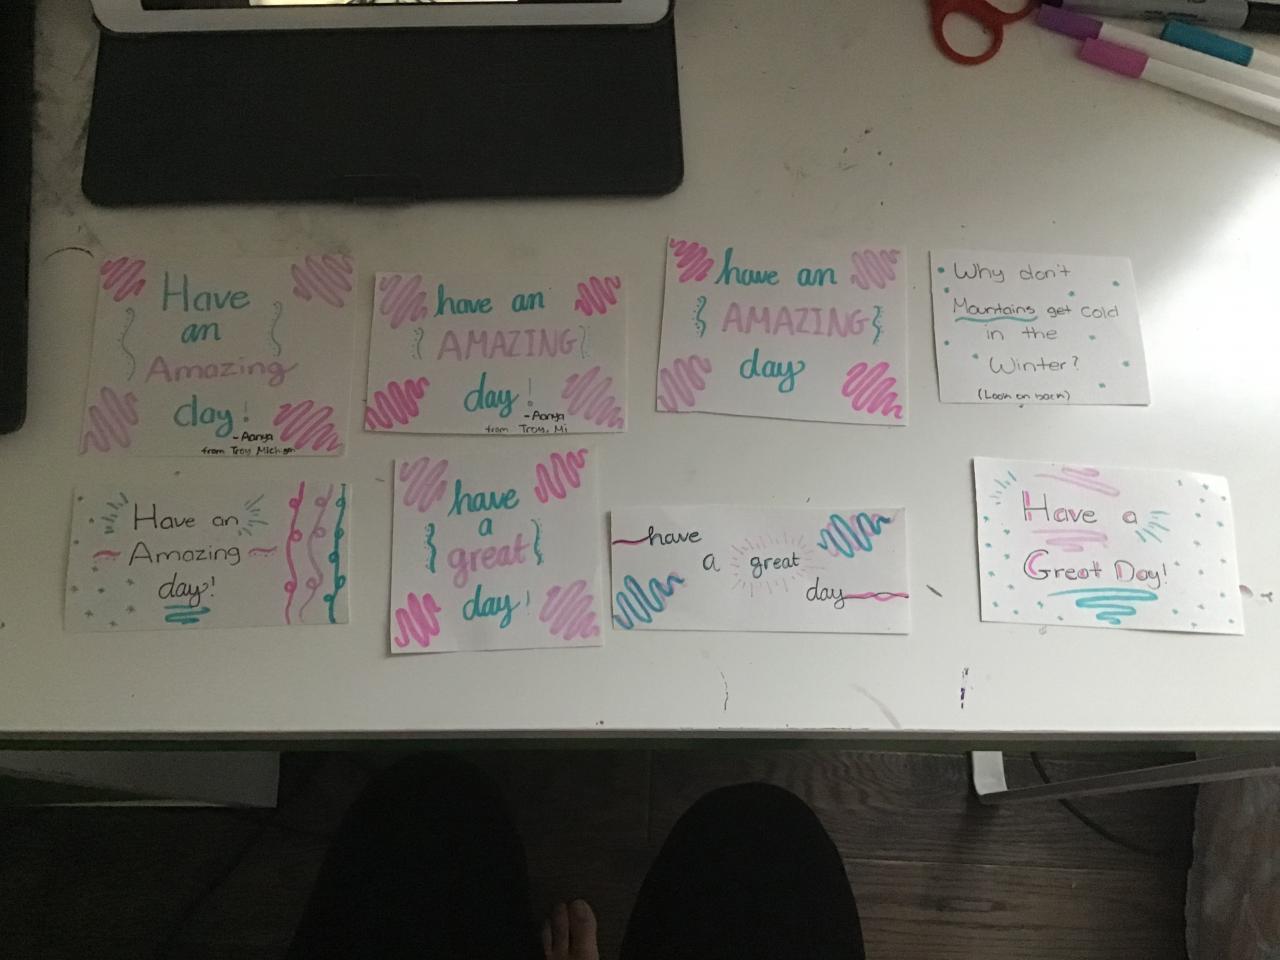 Have
an
Amazing
day!
- Aanya
from Troy Michgan
have an
AMAZING
day!
- Aanya
from Troy, Mi
have an
AMAZING
day
Why don't
Mountains get cold
in the
Winter?
(Look on back)
Have an
Amazing
day!
have
a
great
day!
have
a great
day
Have a
Great Day!